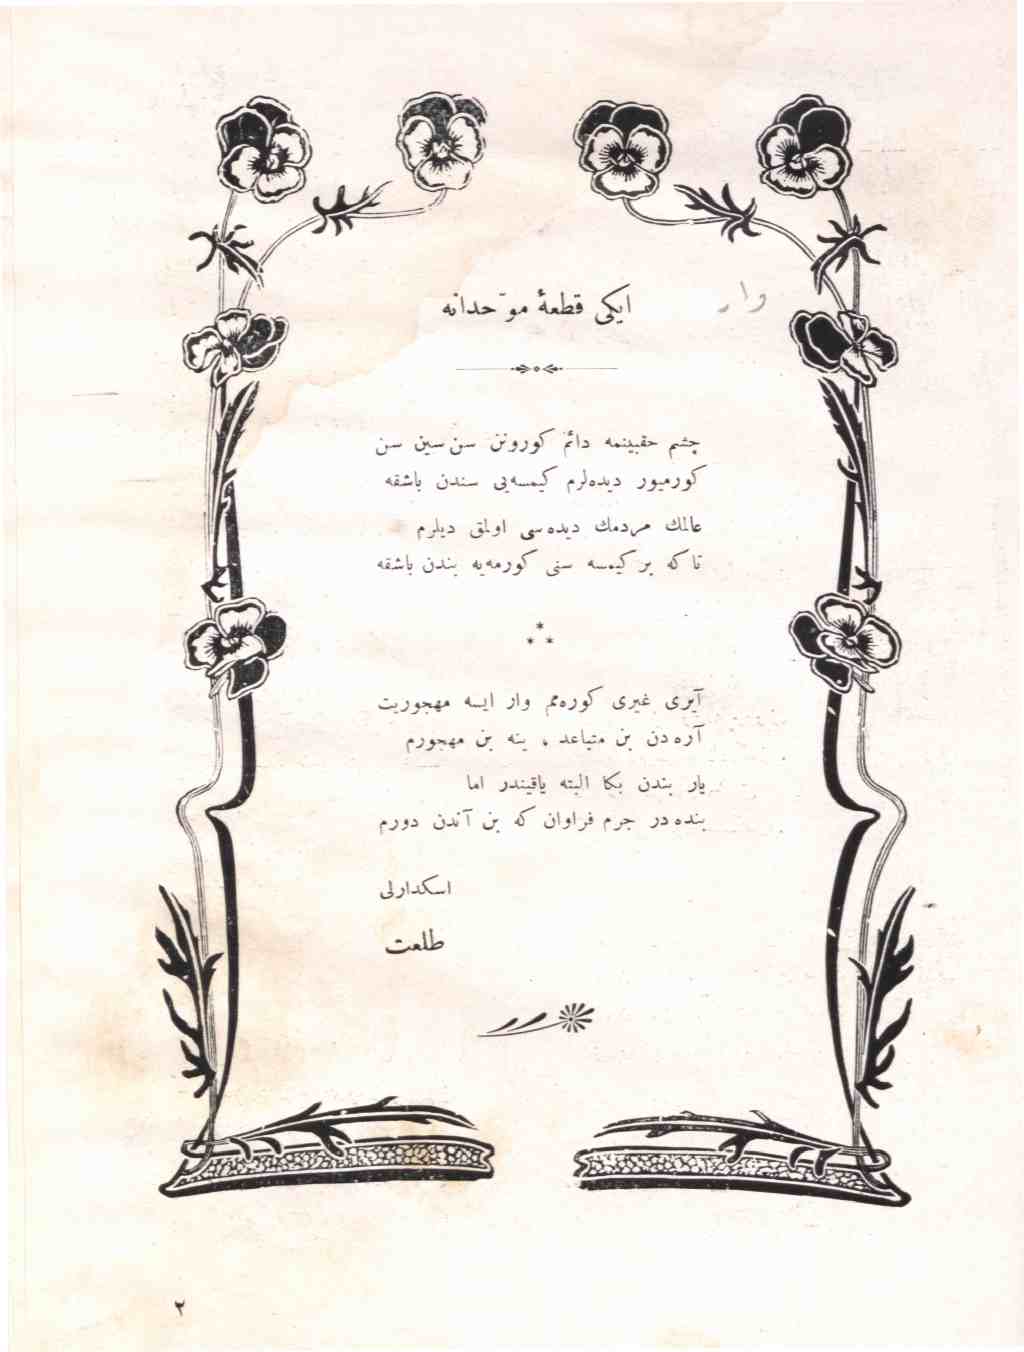 ایكی قطعهٔ موّحدانه
وار
چشم حقبینمه دائم كورونن سن سین سن
كورمیور دیده‌لرم كیمسه‌یی سندن باشقه
عالمك مردمك دیده سی اولمق دیلرم
تا كه بر كیمسه سنی كورمه‌یه بندن باشقه
* * *
آیری غیری كوره‌مم وار ایسه مهجوریت
آره دن بن متباعد ، ینه بن مهجورم
یار بندن بكا البته یاقیندر اما
بنده در جرم فراوان كه بن آندن دورم
اسكدارلی
طلعت
٢